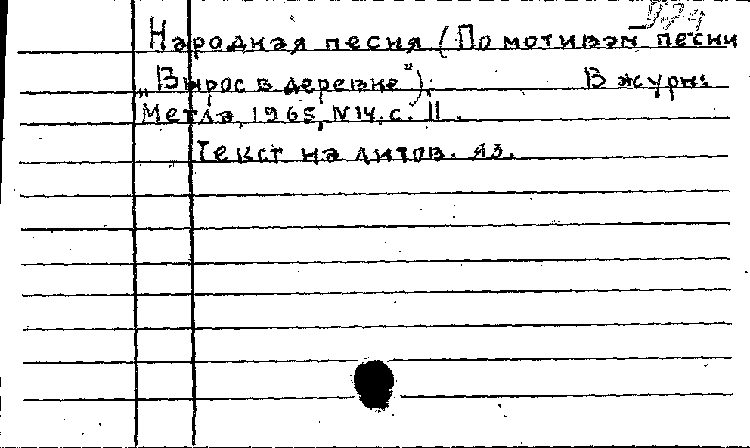 Народная песня (По мотивам песни
„Вырос в деревне"). В журн:
Метла, 1965, N14, с. 11.
Текст на литов. яз.